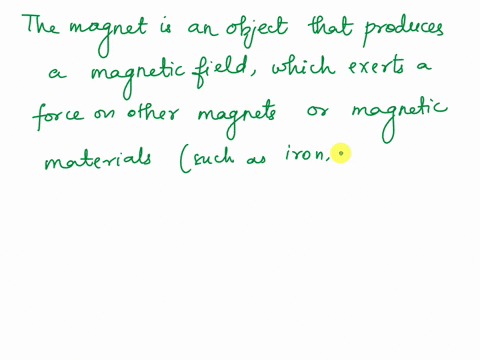 The magnet is an object that produces
a magnetic field, which exerts a
force on other magnets or magnetic
materials (such as iron,